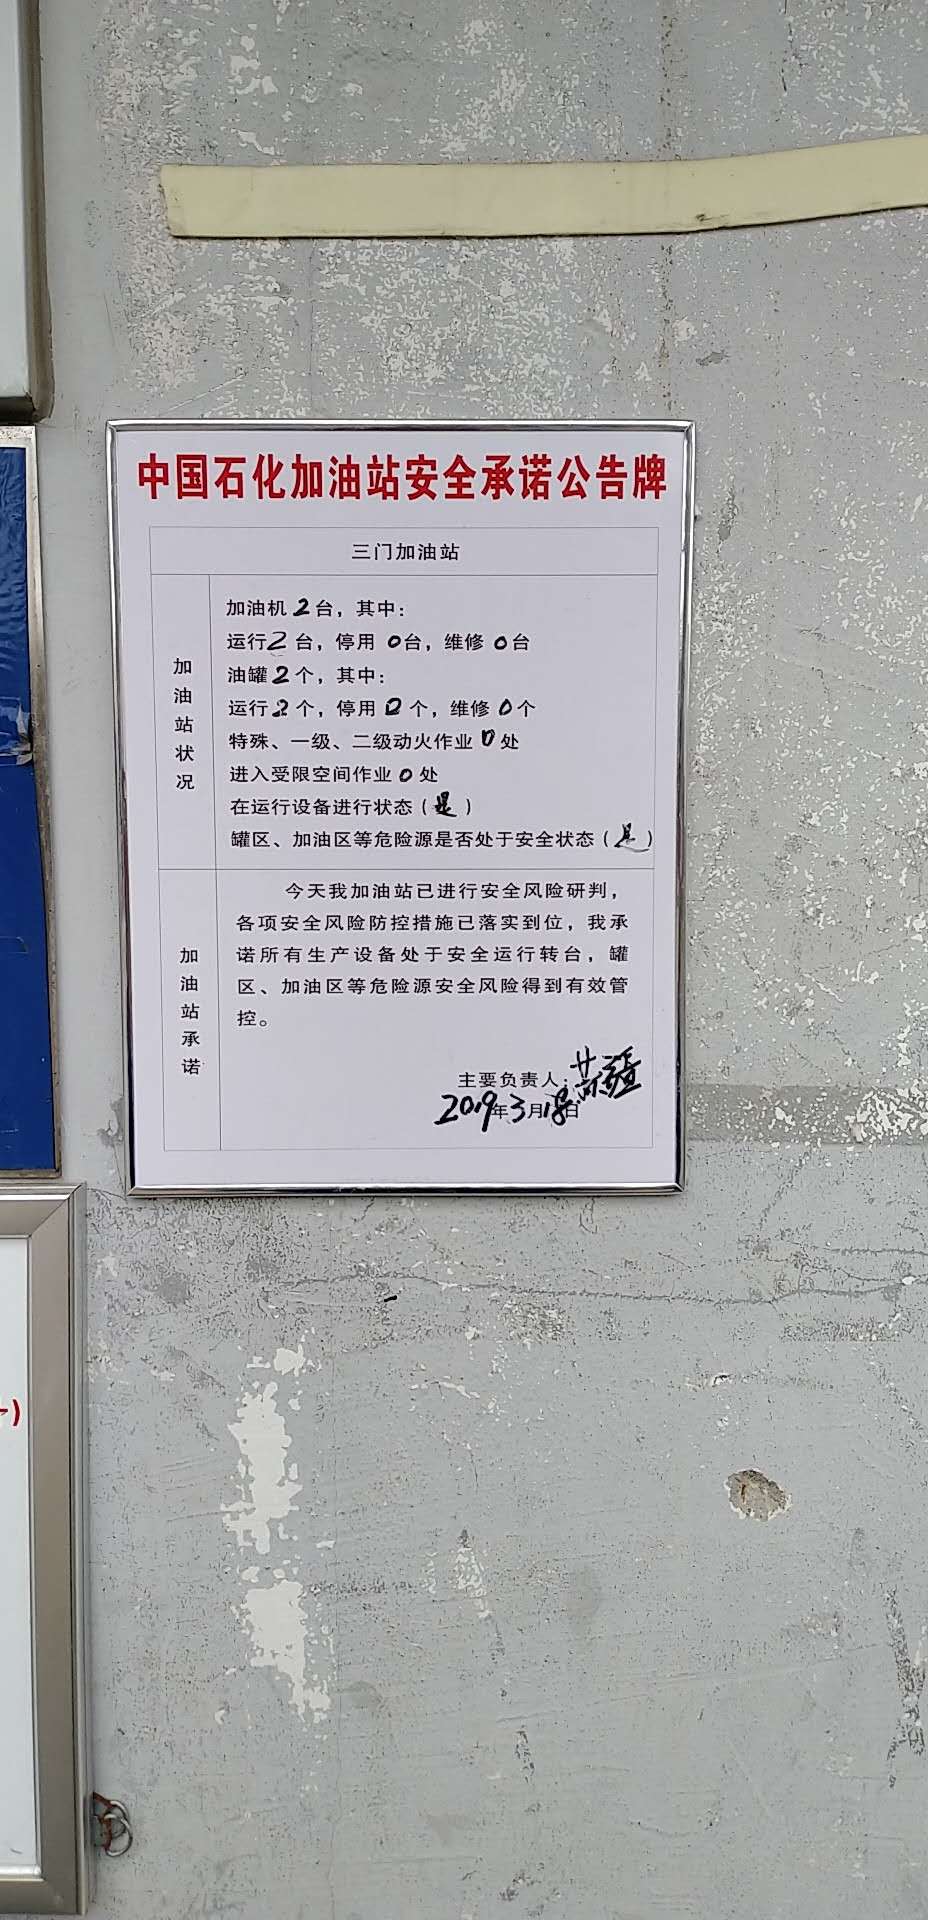 中国石化加油站安全承诺公告牌
三门加油站
加油站状况
加油机 2 台，其中：
运行 2 台，停用 0 台，维修 0 台
油罐 2 个，其中：
运行 2 个，停用 0 个，维修 0 个
特殊、一级、二级动火作业 0 处
进入受限空间作业 0 处
在运行设备进行状态（是）
罐区、加油区等危险源是否处于安全状态（是）
加油站承诺
今天我加油站已进行安全风险研判，
各项安全风险防控措施已落实到位，我承
诺所有生产设备处于安全运行转台，罐
区、加油区等危险源安全风险得到有效管
控。
主要负责人：
2019年3月18日